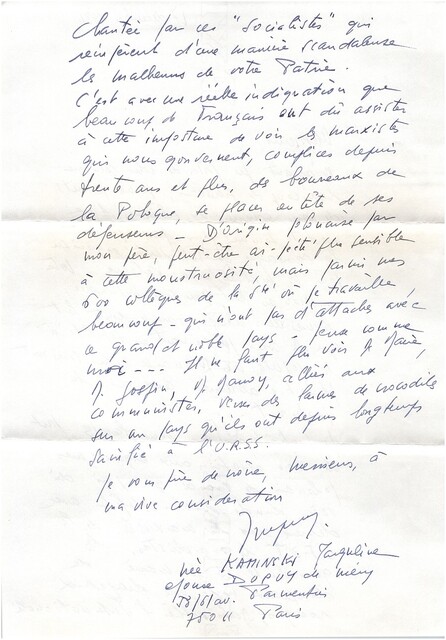 chantée par ces "Socialistes" qui
d'une manière scandaleuse
le malheur de votre Patrie.
C'est avec une réelle indignation que
beaucoup de Français ont dû assister
à cette imposture de voir les marxistes
qui nous gouvernent, complices depuis
trente ans et plus, des bourreaux de
la Pologne, se placer en tête de ses
défenseurs - D'origine polonaise par
mon père, peut-être ai-je été plus sensible
à cette monstruosité, mais parmi mes
600 collègues de la Sté où je travaille,
beaucoup - qui n'ont pas d'attaches avec
ce grand et noble pays - pense comme
moi --- Il ne faut plus voir
M. Jospin, M. Mauroy, alliés aux
communistes, verser des larmes de crocodile
sur un pays qu'ils ont depuis longtemps
sacrifié à l'U.R.S.S.
Je vous prie de croire, messieurs, à
ma vive considération
Dupuy.
née KAMINSKI Jacqueline
épouse DUPUY de
av. Parmentier
75011 Paris